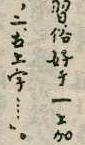 習俗好于一上加
，二古上字……。